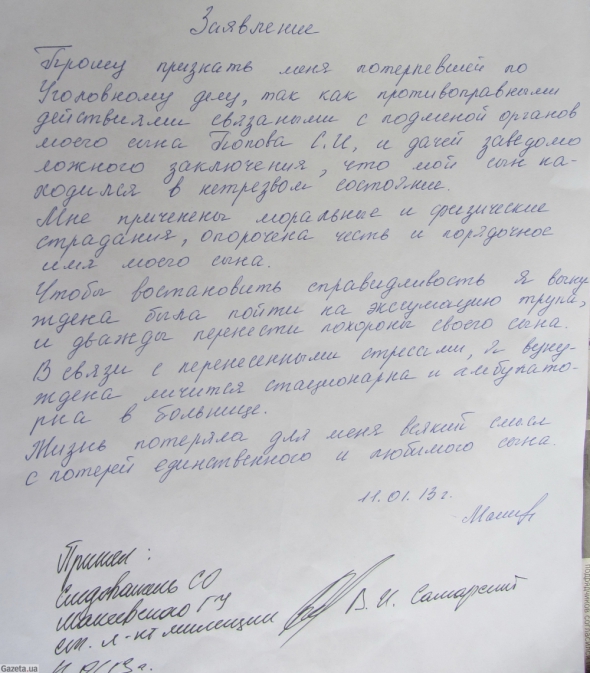 Заявление
Прошу признать меня потерпевшей по
Уголовному делу, так как противоправными
действиями связаными с подменой органов
моего сына Попова С.И, и дачей заведомо
ложного заключения, что мой сын на-
ходился в нетрезвом состояние.
Мне приченены моральные и физические
страдания, опорочена честь и порядочное
имя моего сына.
Чтобы востановить справидливость я выну
ждена была пойти на эксгумацию трупа,
и дважды перенести похороны своего сына.
В связи с перенесенными стрессами, я выну-
ждена личится стационарна и амбулато-
рна в больнице.
Жизнь потеряла для меня всякий смысл
с потерей единственного и любимого сына.
11.01.13г.
Принял:
Следователь СО
Макеевского ГУ
ст. л-нт милиции В.И. Самарский
Gazeta.ua